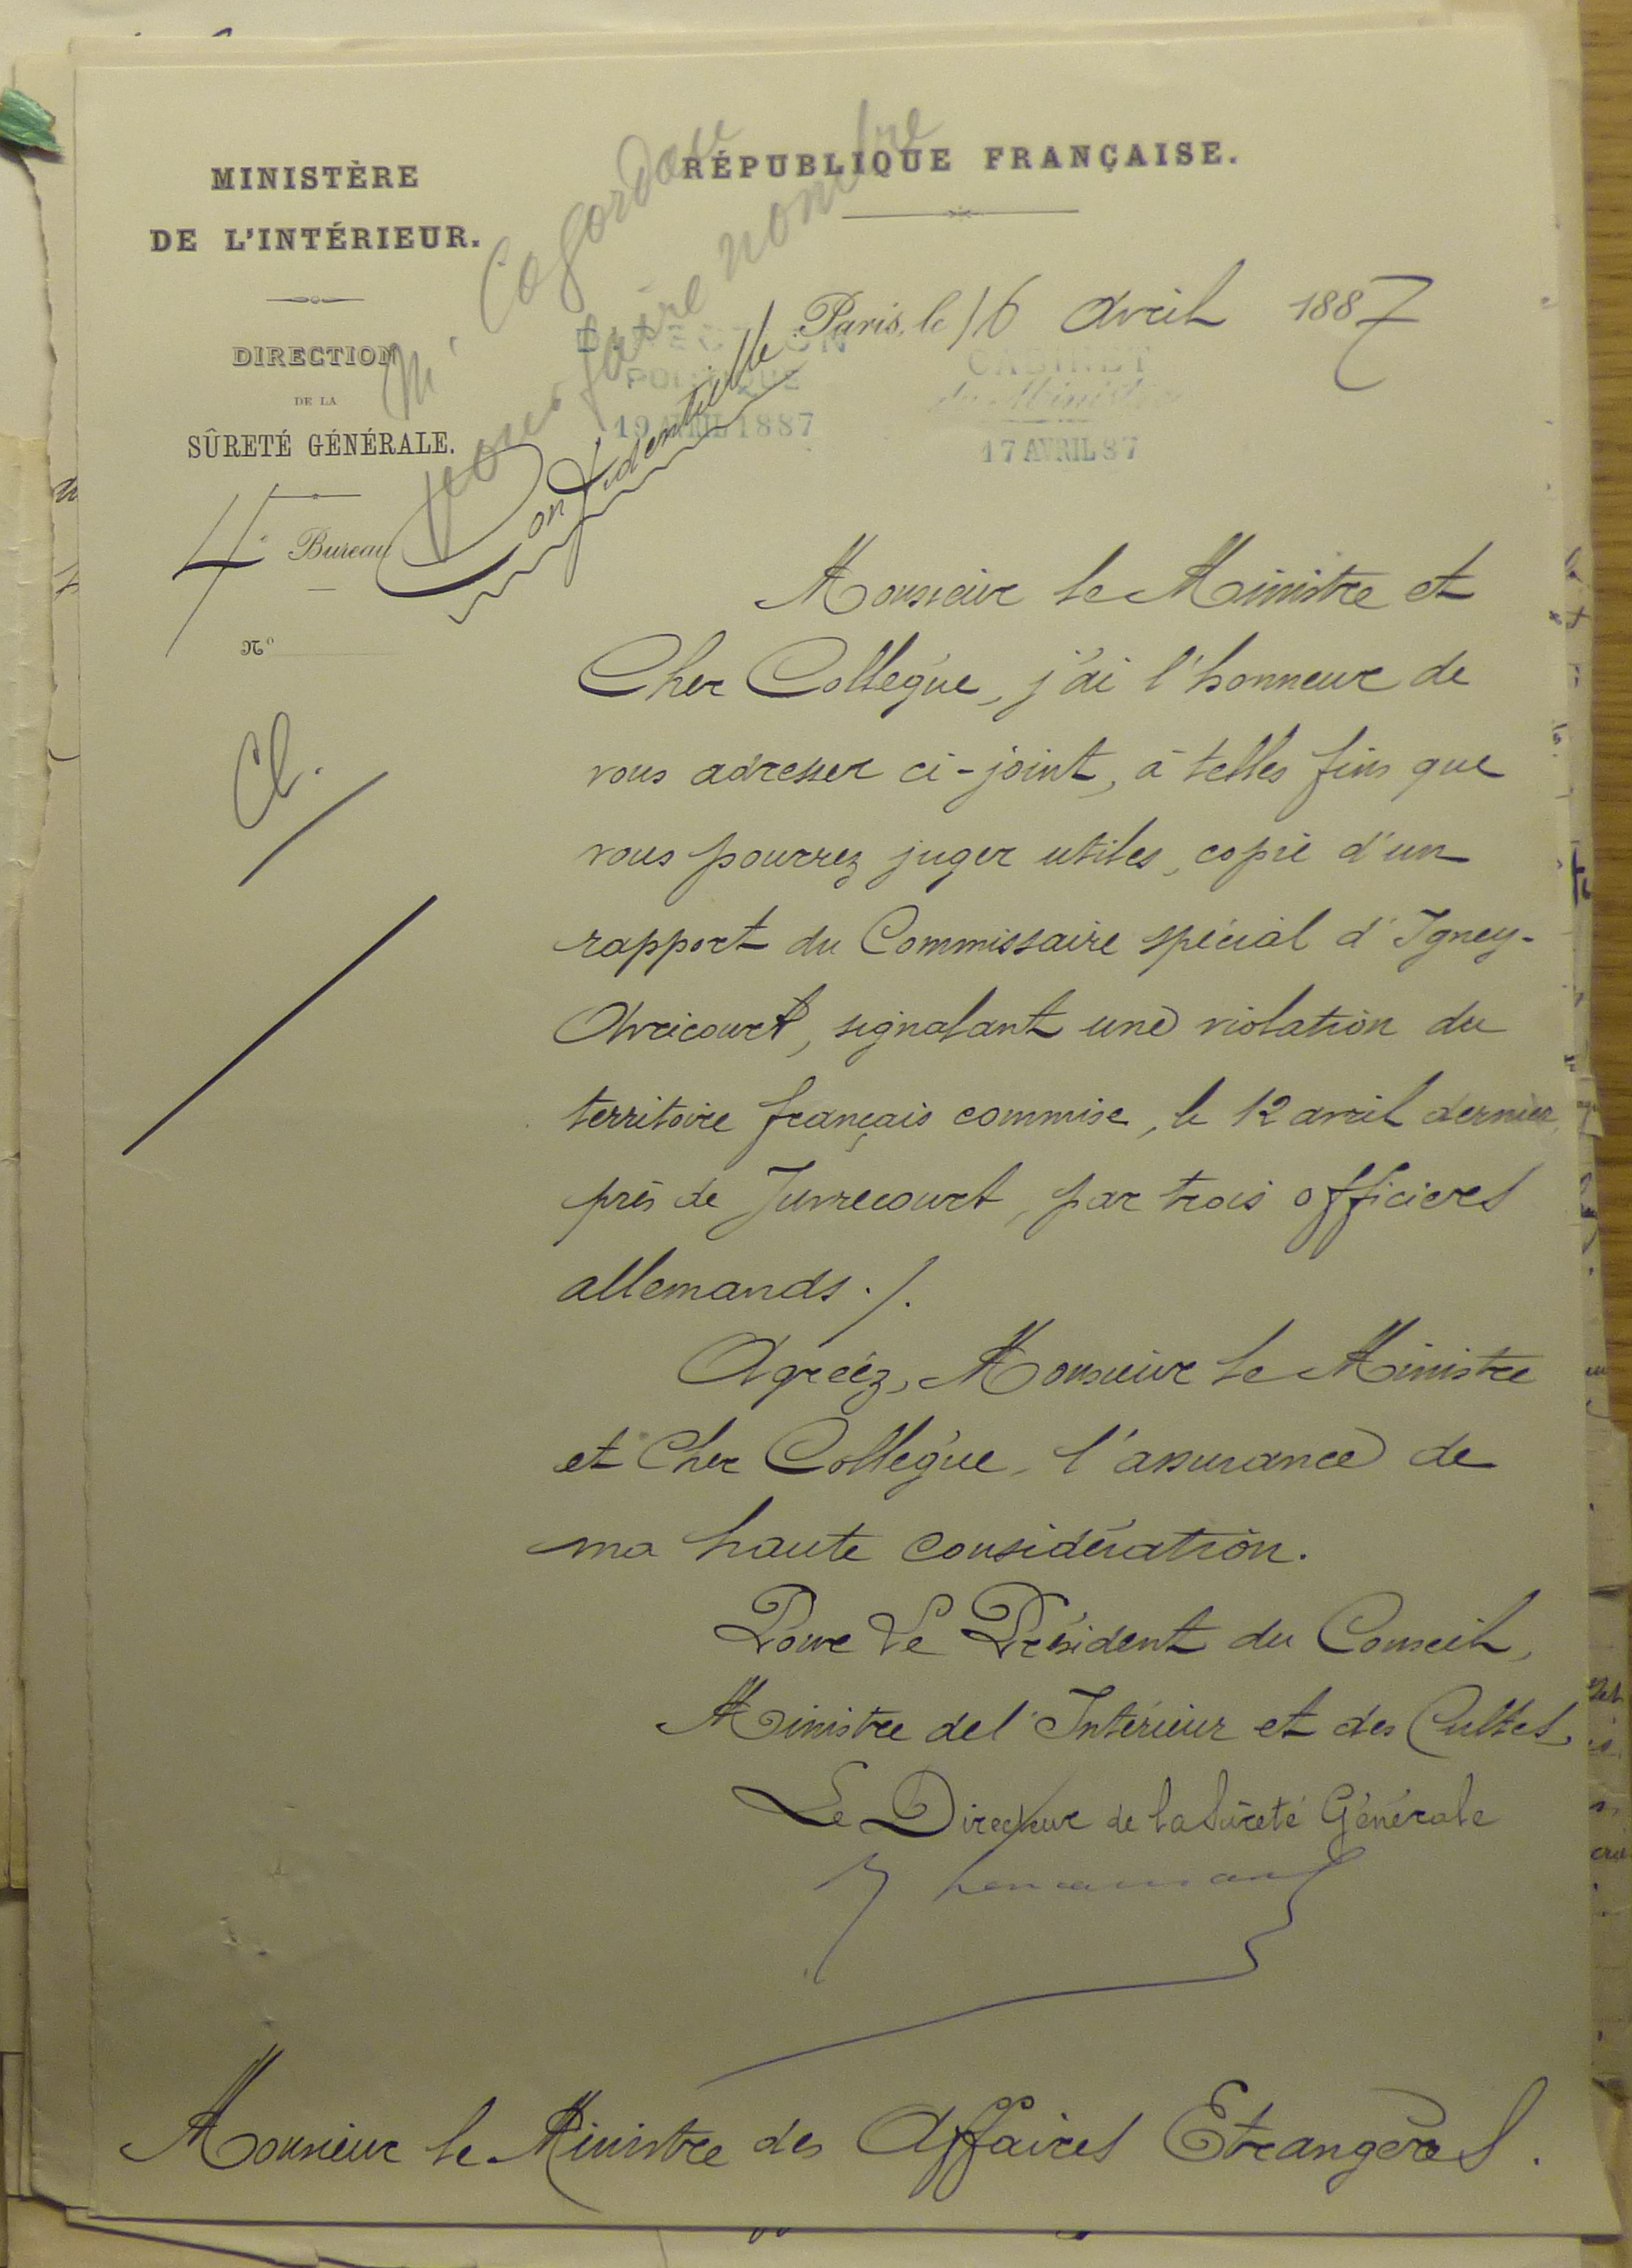 MINISTÈRE
DE L'INTÉRIEUR.
DIRECTION
DE LA
SÛRETÉ GÉNÉRALE.
4e Bureau
N°
RÉPUBLIQUE FRANÇAISE.
M. Cogordan
pour faire nombre
Paris, le 16 Avril 1887
DIRECTION
POLITIQUE
19 AVRIL 1887
CABINET
du Ministre
17 AVRIL 87
Confidentielle
Cl.
Monsieur le Ministre et
Cher Collègue, j'ai l'honneur de
vous adresser ci-joint, à telles fins que
vous pourrez juger utiles, copie d'un
rapport du Commissaire spécial d'Igney-
Avricourt, signalant une violation du
territoire français commise, le 12 avril dernier,
près de Juvrecourt, par trois officiers
allemands ./.
Agréez, Monsieur le Ministre
et Cher Collègue, l'assurance de
ma haute considération.
Pour Le Président du Conseil,
Ministre de l'Intérieur et des Cultes,
Le Directeur de la Sûreté Générale
Monsieur le Ministre des Affaires Etrangères.